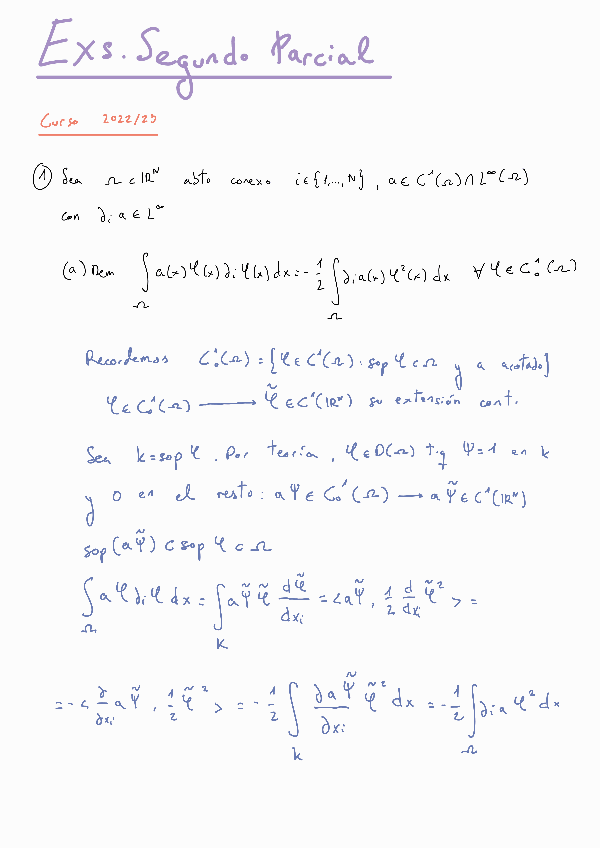 Exs. Segundo Parcial
Curso 2022/23
① Sea Ω ⊂ ℝᴺ abto conexo i ∈ {1,...,N}, a ∈ C¹(Ω) ∩ L^∞(Ω)
con ∂ᵢ a ∈ L^∞
(a) Dem ∫_Ω a(x) φ(x) ∂ᵢ φ(x) dx = - 1/2 ∫_Ω ∂ᵢ a(x) φ²(x) dx ∀ φ ∈ C₀¹(Ω)
Recordemos C₀¹(Ω) = {φ ∈ C¹(Ω) : sop φ ⊂ Ω y a acotado}
φ ∈ C₀¹(Ω) ⟶ φ̃ ∈ C¹(ℝᴺ) su extensión cont.
Sea k = sop φ. Por teoría, φ ∈ D(Ω) t.q ψ = 1 en k
y 0 en el resto: a ψ ∈ C₀¹(Ω) ⟶ a ψ̃ ∈ C¹(ℝᴺ)
sop (a ψ̃) ⊂ sop φ ⊂ Ω
∫_Ω a φ ∂ᵢ φ dx = ∫_K a ψ̃ φ̃ dφ̃/dxᵢ = < a ψ̃, 1/2 d/dxᵢ φ̃² > =
= - < ∂/∂xᵢ a ψ̃, 1/2 φ̃² > = - 1/2 ∫_k ∂a ψ̃/∂xᵢ φ̃² dx = - 1/2 ∫_Ω ∂ᵢ a φ² dx